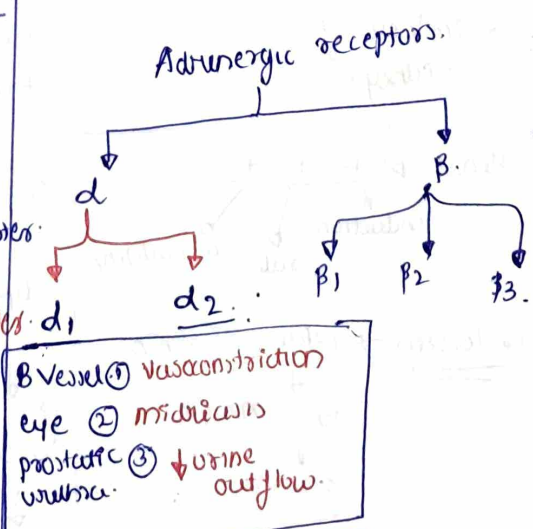 Adrenergic receptors.
α
β.
α1
α2
β1
β2
β3.
B Vessel ① vasoconstriction
eye ② midriasis
prostatic ③ ↓ urine
urethra. outflow.